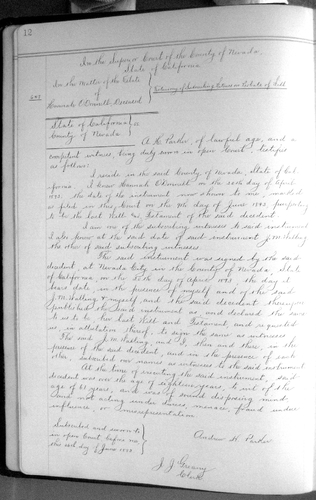 12
In the Superior Court of the County of Nevada,
State of California
In the Matter of the Estate
of
Deceased
Testimony of Subscribing Witness on Probate of Will
State of California } ss
County of Nevada
A. H. Parker, of lawful age, and a
competent witness, being duly sworn in open Court, testifies
as follows:
I reside in the said County of Nevada, State of Cal-
ifornia. I knew Hannah on the 25th day of April
the date of the instrument now shown to me, marked
as filed in this Court on the 9th day of June purporting
to be the last Will and Testament of the said decedent.
I am one of the subscribing witnesses to said instrument
I also knew at the said date of said instrument J. M. Walling
the other of said subscribing witnesses.
The said instrument was signed by the said
decedent, at Nevada City in the County of Nevada, State
of California on the 25th day of April the day it
bears date in the presence of myself and of the said
J. M. Walling & myself, and the said decedent thereupon
published the said instrument as, and declared the same
to us to be her last Will and Testament, and requested
us, in attestation thereof to sign the same as witnesses
The said J. M. Walling, and I, then and there, in the
presence of the said decedent, and in the presence of each
other, subscribed our names as witnesses to the said instrument
At the time of executing the said instrument, said
decedent was over the age of eighteen years, to wit of the
age of years, and was of sound disposing mind
and not acting under duress, menace, fraud undue
influence, or misrepresentation
Subscribed and sworn to
in open Court before me,
this day of June
Andrew H. Parker
J. J.
Clerk